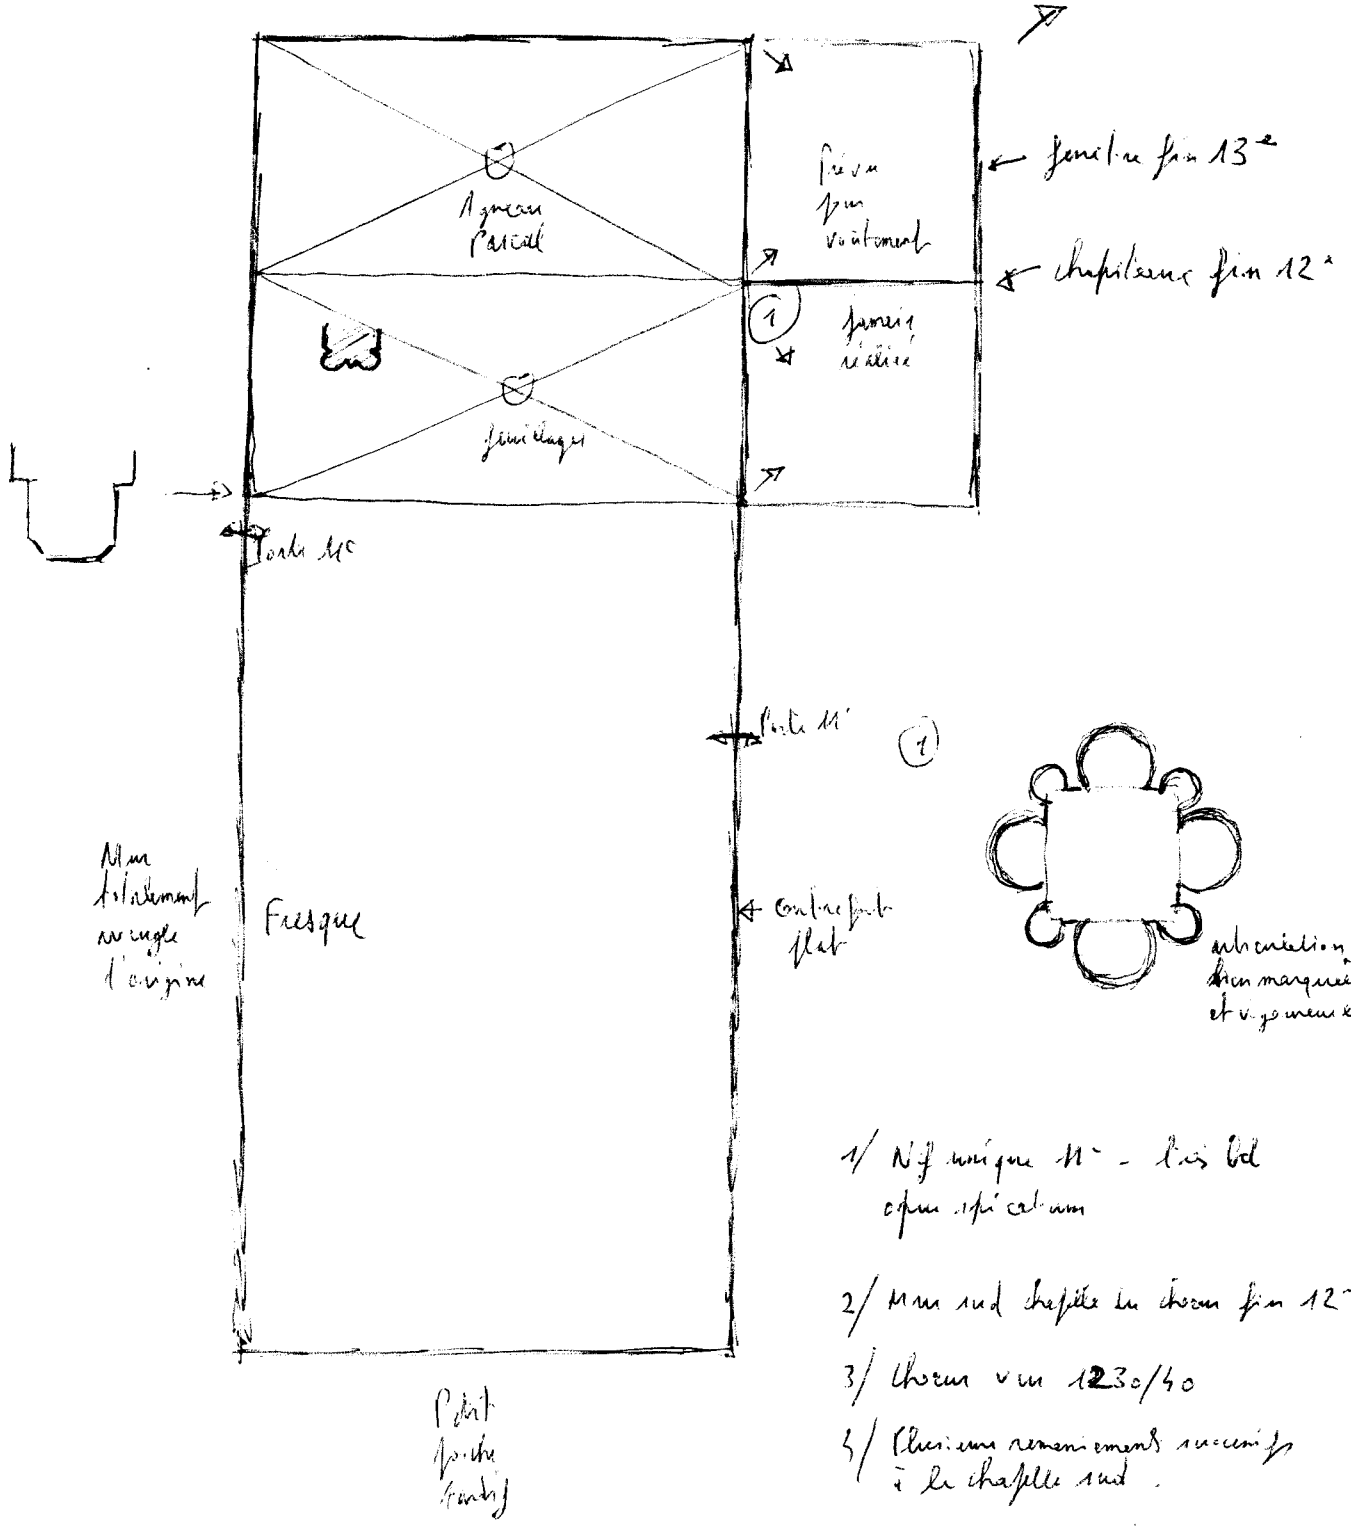 fenêtre fin 13e
Prévu
pour
voûtement
Agneau
Pascal
chapiteaux fin 12e
1
jamais
réalisé
feuillages
Porte 11e
Porte 11e
1
Mur
totalement
aveugle
l'origine
Fresque
contrefort
flat
articulation
bien marquée
et vigoureuse
1/ Nef unique 11e - très bel
opus spicatum
2/ Mur sud chapelle du choeur fin 12e
3/ Choeur vers 1230/40
4/ Plusieurs remaniements successifs
à la chapelle sud.
Petit
porche
tardif